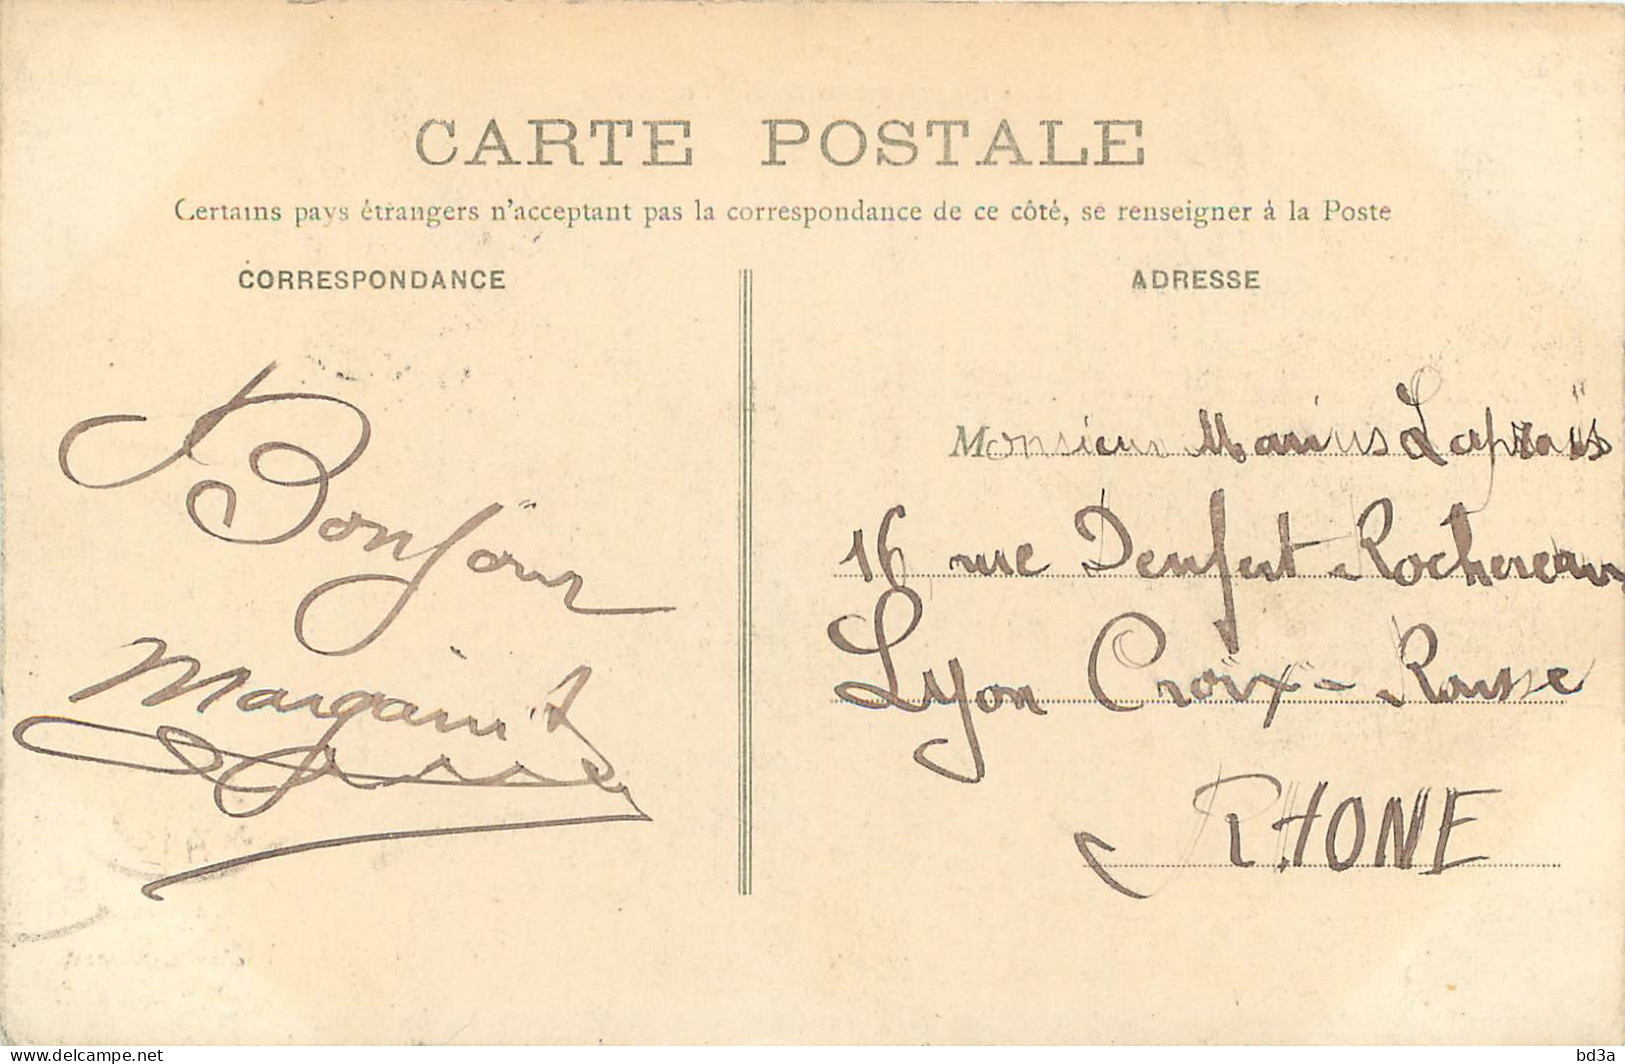 CARTE POSTALE
Certains pays étrangers n'acceptant pas la correspondance de ce côté, se renseigner à la Poste
CORRESPONDANCE
Bonjour
ADRESSE
Monsieur Marius
16 rue Denfert-Rochereau
Lyon Croix-Rousse
RHONE
www.delcampe.net
bd3a